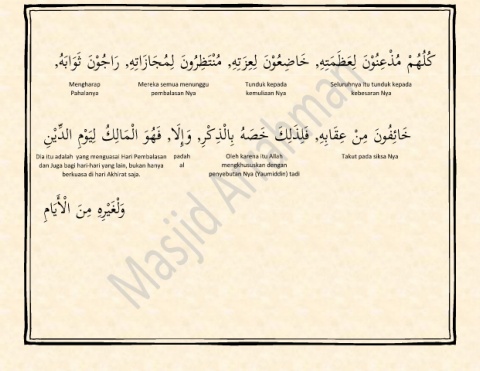 كُلُهُمْ مُذْعِنُوْنَ لِعَظَمَتِهِ, خَاضِعُوْنَ لِعِزَتِهِ, مُنْتَظِرُونَ لِمُجَازَاتِهِ, رَاجُوْنَ ثَوَابَهُ,
Seluruhnya itu tunduk kepada kebesaran Nya
Tunduk kepada kemuliaan Nya
Mereka semua menunggu pembalasan Nya
Mengharap Pahalanya
خَائِفُونَ مِنْ عِقَابِهِ, فَلِذَلِكَ خَصَهُ بِالْذِكْرِ, وَإِلَا, فَهُوَ الْمَالِكُ لِيَوْمِ الْدِّيْنِ
Takut pada siksa Nya
Oleh karena itu Allah mengkhususkan dengan penyebutan Nya (Yaumiddin) tadi
padahal
Dia itu adalah yang menguasai Hari Pembalasan dan Juga bagi hari-hari yang lain, bukan hanya berkuasa di hari Akhirat saja.
وَلْغَيْرِهِ مِنَ الْأَيَامِ
Masjid Arrahman